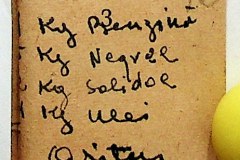 Kg Benzină
Kg Negrol
Kg Solidol
Kg Ulei